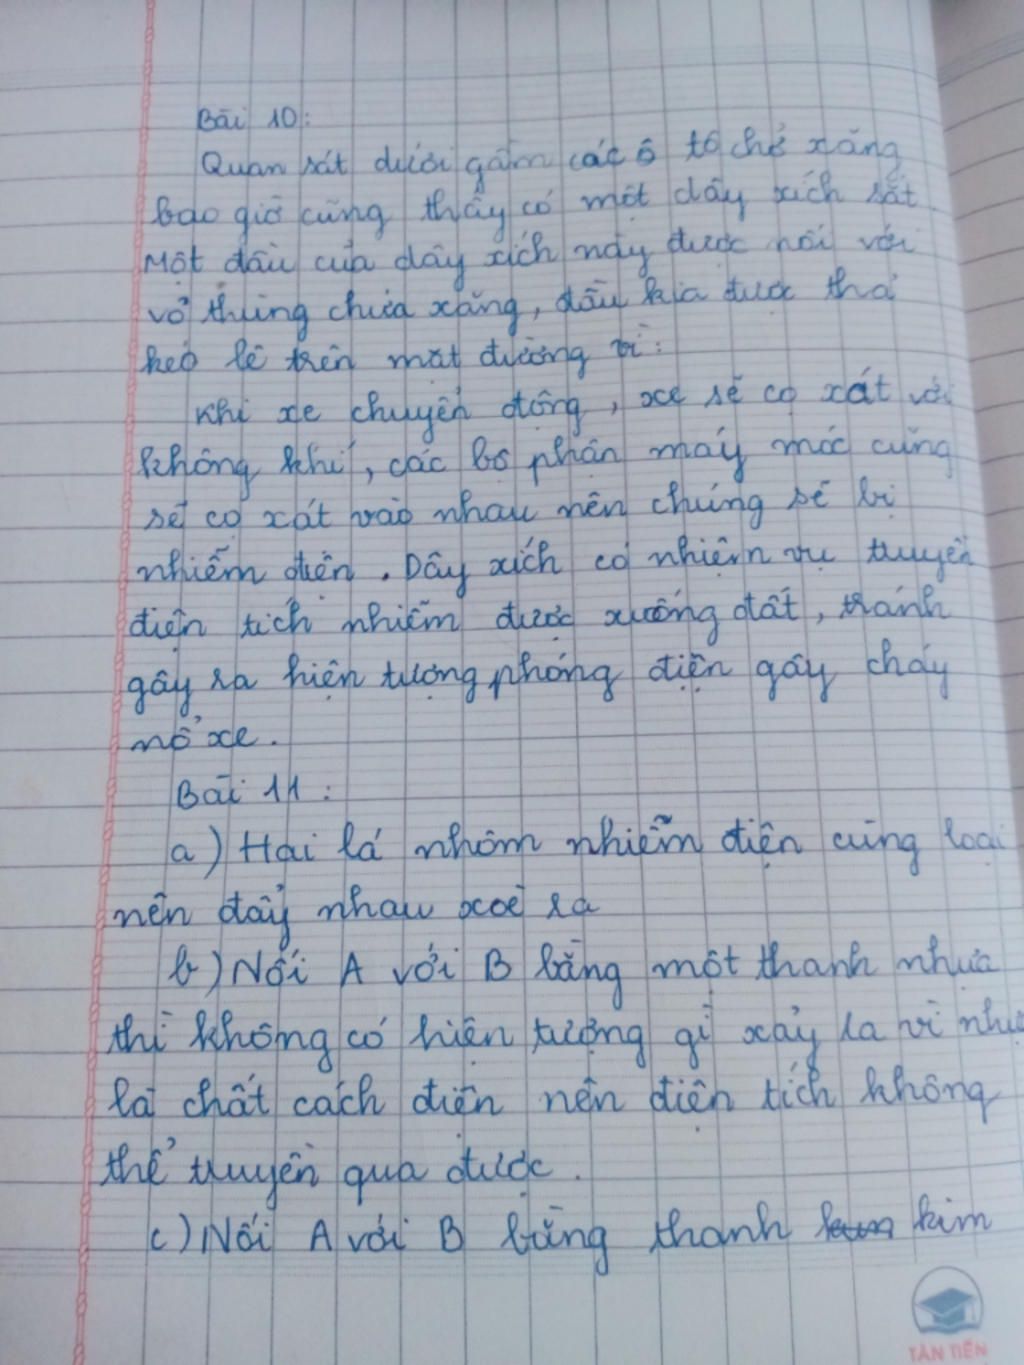 Bài 10:
Quan sát dưới gầm các ô tô chở xăng
bao giờ cũng thấy có một dây xích sắt
Một đầu của dây xích này được nối với
vỏ thùng chứa xăng, đầu kia được thả
kéo lê trên mặt đường vì:
Khi xe chuyển động, xe sẽ cọ xát với
không khí, các bộ phận máy móc cũng
sẽ cọ xát vào nhau nên chúng sẽ bị
nhiễm điện. Dây xích có nhiệm vụ truyền
điện tích nhiễm được xuống đất, tránh
gây ra hiện tượng phóng điện gây cháy
nổ xe.
Bài 11:
a) Hai lá nhôm nhiễm điện cùng loại
nên đẩy nhau xoè ra
b) Nối A với B bằng một thanh nhựa
thì không có hiện tượng gì xảy ra vì nhự
là chất cách điện nên điện tích không
thể truyền qua được.
c) Nối A với B bằng thanh kim
TÂN TIẾN